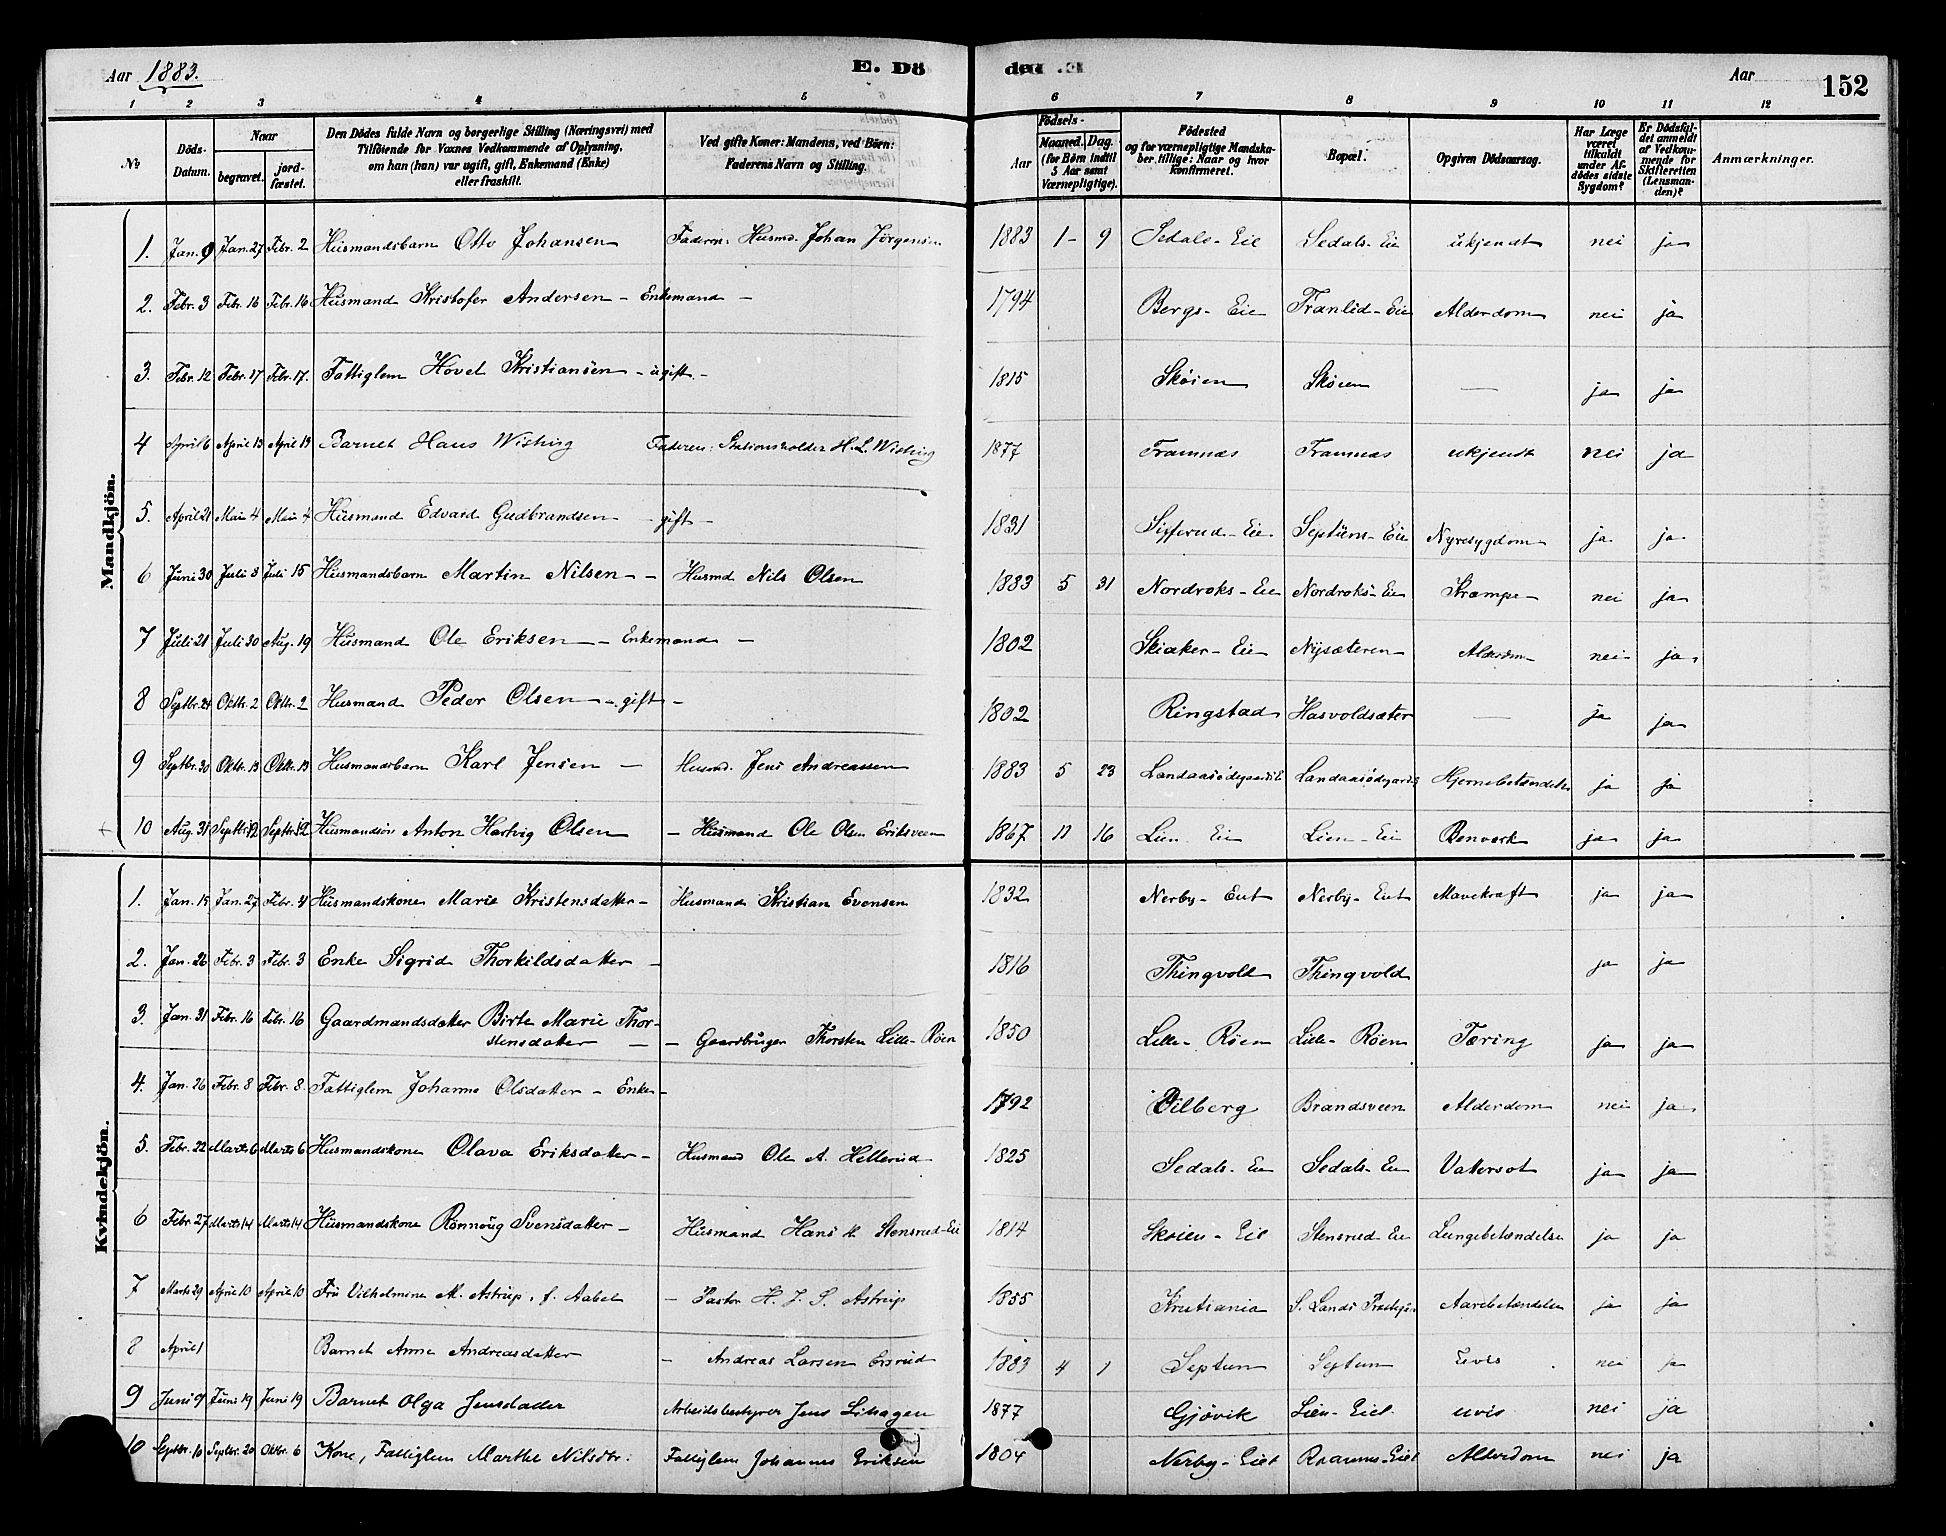 Aar 1883.
E. Dö
den .E
Aar
152
1 2 3 4 5 6 7 8 9 10 11 12
No
Döds-Datum.
Naar
begravet.
jord-fæstet.
Den Dödes fulde Navn og borgerlige Stilling (Næringsvei) med
Tilföiende for Voxnes Vedkommende af Oplysning,
om han (hun) var ugift, gift, Enkemand (Enke)
eller fraskilt.
Ved gifte Koner: Mandens, ved Börn:
Faderens Navn og Stilling.
Födsels-
Aar
Maaned. Dag.
(for Börn indtil
5 Aar samt
Værnepligtige).
Födested
og for værnepligtige Mandska-
ber tillige: Naar og hvor
konfirmeret.
Bopæl.
Opgiven Dödsaarsag.
Har Læge
været
tilkaldt
under Af-
dödes sidste
Sygdom?
Er Dödsfal-
det anmeldt
af Vedkom-
mende for
Skifteretten
(Lensman-
den)?
Anmærkninger.
Mandkjön.
1. Jan. 9 Jan. 27 Febr. 2 Husmandsbarn Otto Johansen Faderen: Husmd. Johan Jörgensen 1883 1 - 9 Sedals-Eie Sedals-Eie ukjendt nei ja
2. Febr. 3 Febr. 16 Febr. 16 Husmand Kristofer Andersen - Enkemand - 1794 Bergs-Eie Tranlid-Eie Alderdom nei ja
3. Febr. 12 Febr. 17 Febr. 17. Fattiglem Hovel Kristiansen - ugift - 1815 Skóien Skóien — ja ja
4 April 6 April 13 April 13 Barnet Hans Wisting Faderen: Stationsholder H. L. Wisting 1877 Framnæs Framnæs ukjendt nei ja
5. April 21 Mai 4 Mai 4 Husmand Edvard Gudbrandsen - gift - 1831 Sifferud-Eie Septuns-Eie Nyresygdom ja ja
6 Juni 30 Juli 8 Juli 15 Husmandsbarn Martin Nilsen - - Husmd Nils Olsen 1883 5 31 Nordroks-Eie Nordroks-Eie Krampe nei ja
7 Juli 21 Juli 30 Aug. 19 Husmand Ole Eriksen - Enkemand - 1802 Skiaker-Eie Nysæteren Alderdom nei ja
8 Septbr. 24 Oktbr. 2 Oktbr. 2 Husmand Peder Olsen - gift - 1802 Ringstad Hasvoldsæter — ja ja
9 Septbr. 30 Oktbr. 13 Oktbr. 13 Husmandsbarn Karl Jensen - Husmd. Jens Andreassen 1883 5 23 Landaasódegaards Hjernebetændelse ja ja
+ 10 Aug. 31 Septbr. 12 Septbr. 12 Husmandsön Anton Hartvig Olsen - Husmand Ole Olsen Eriksveen 1867 11 16 Lien-Eie Lien-Eie Benværk ja ja
Kvindekjön.
1. Jan. 15 Jan. 27 Febr. 4 Husmandskone Marie Kristensdatter - Husmand Kristian Evensen 1832 Nerby-Eiet Nerby-Eiet Mavekræft ja ja
2. Jan. 26 Febr. 3 Febr. 3 Enke Sigrid Thorkildsdatter - 1816 Thingvold Thingvold ja ja
3. Jan. 31 Febr. 16 Febr. 16 Gaardmandsdatter Birte Marie Thor-
stensdatter - - Gaardbruger Thorsten Lille-Röen 1850 Lille-Röen Lille-Röen Tæring ja ja
4. Jan. 26 Febr. 8 Febr. 8. Fattiglem Johanne Olsdatter - Enke - 1792 Oilberg Brandsveen Alderdom nei ja
5. Febr. 22 Marts 6 Marts 6 Husmandskone Olava Eriksdatter - Husmand Ole A. Hellerud 1825 Sedals-Eie Sedals-Eie Vattersot ja ja
6 Febr. 27 Marts 14 Marts 14 Husmandskone Rönnoug Svensdatter - Husmand Hans H. Stensrud-Eie 1814 Skóien-Eie Stensrud-Eie Lungebetændelse ja ja
7 Marts 29 April 10 April 10 Fru Vilhelmine M. Astrup, f. Aabel - Pastor H. J. S. Astrup 1855 Kristiania S. Lands Præstegd Aarebetændelse ja ja
8 April 1 Barnet Anne Andreasdatter - Andreas Larsen Ersrud 1883 4 1 Septun Septun uvis nei ja
9 Juni 9 Juni 19 Juni 19 Barnet Olga Jensdatter Arbeidsbestyrer Jens Lihagen 1877 Gjövik Lien-Eiet uvis nei ja
10 Septbr. 10 Septbr. 20 Oktbr. 6 Kone, Fattiglem Marthe Nilsdtr. Fattiglem Johannes Eriksen 1804 Nerby-Eiet Alderdom nei ja